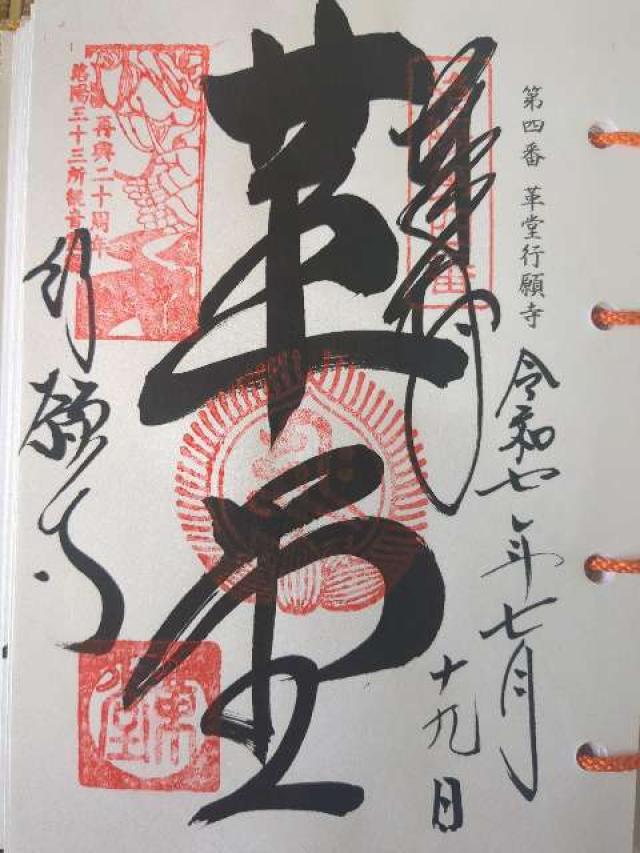 第四番 革堂行願寺
令和七年七月
十九日
奉拝
革堂
再興二十周年
洛陽三十三所観音
行願寺
革堂